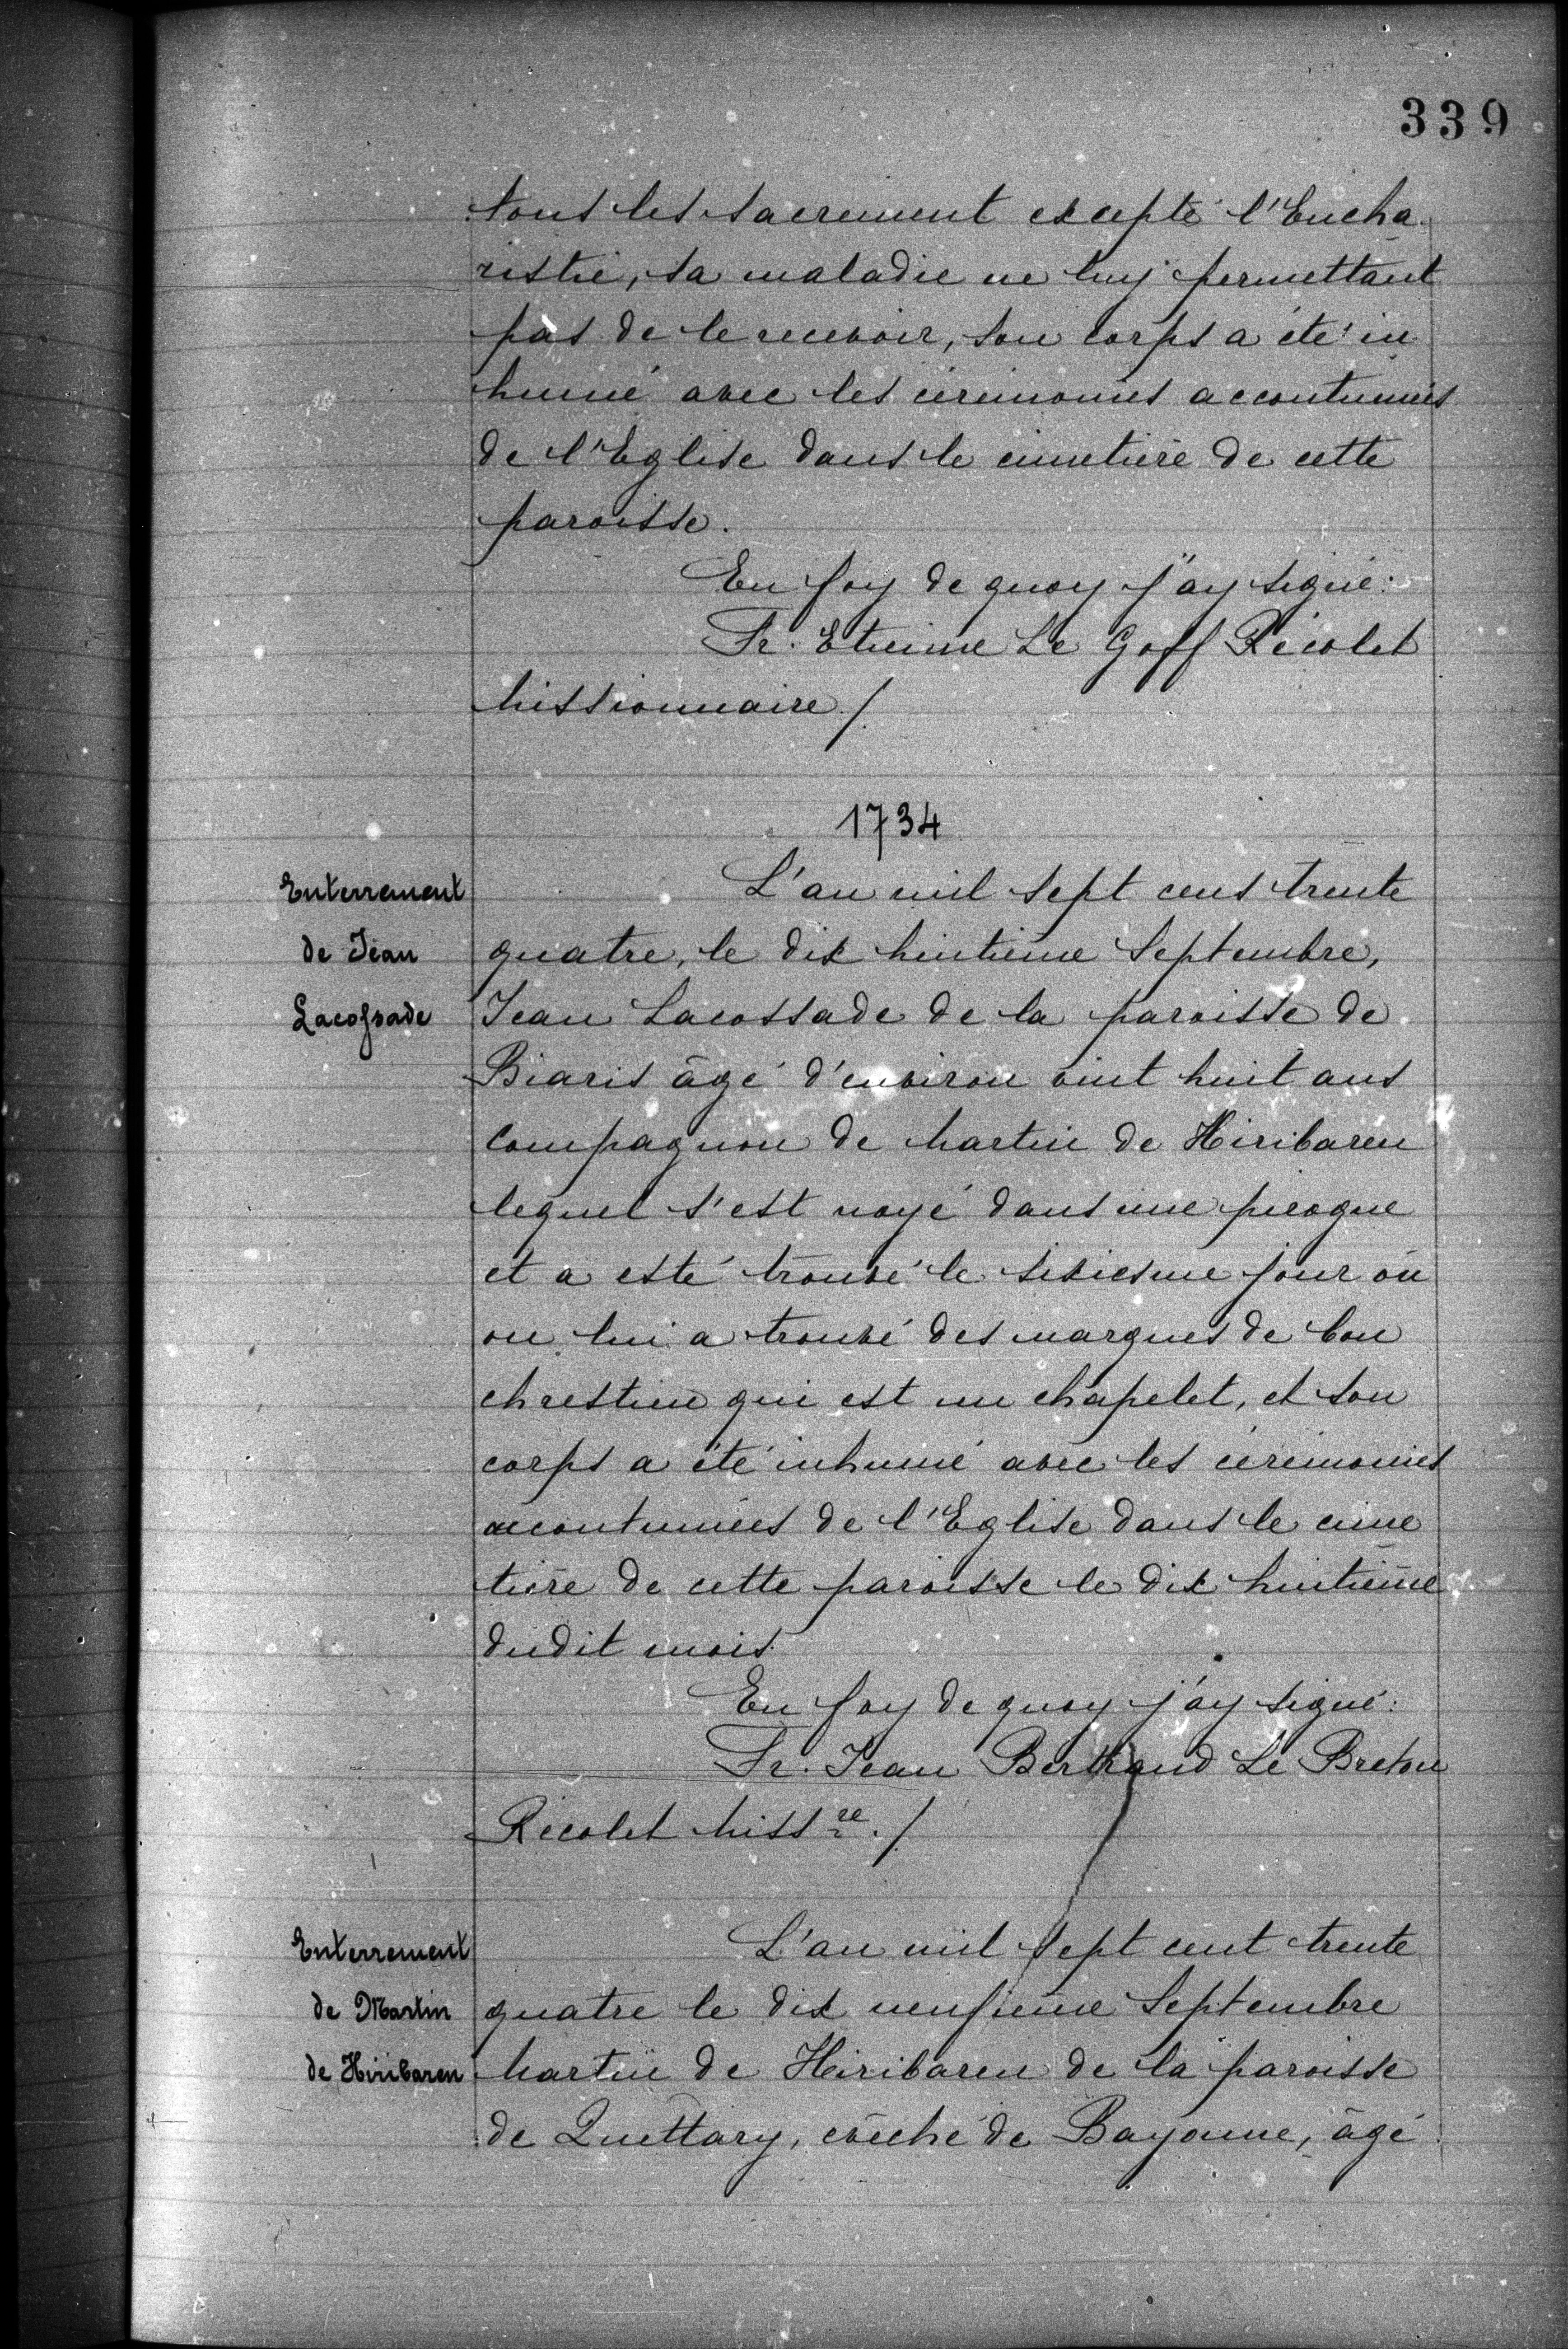 339
tous les sacrement excepté l'Eucha
ristie, sa maladie ne luy permettant
pas de le recevoir, son corps a été in
humé avec les cérémonies accoutumés
de l'Eglise dans le cimetière de cette
paroisse.
En foy de quoy j'ay signé:
Fr. Etienne Le Goff Récolet
Missionnaire ./
1734
L'an mil sept cens trente
Enterrement
de Jean
Lacossade
quatre, le dix huitième Septembre,
Jean Lacossade de la paroisse de
Biaris âgé d'environ vint huit ans
Compagnon de Martin de Hiribaren
lequel s'est noyé dans une pirogue
et a esté trouvé le sixiesme jour où
on lui a trouvé des marques de bon
chrestien qui est un chapelet, et son
corps a été inhumé avec les cérémonies
accoutumées de l'Eglise dans le cime
tière de cette paroisse le dix huitième
dudit mois.
En foy de quoy j'ay signé:
Fr. Jean Bertrand Le Breton
Récolet Miss re ./
Enterrement
de Martin
de Hiribaren
L'an mil sept cent trente
quatre le dix neufieme Septembre
Martin de Hiribaren de la paroisse
de Quettary, evêché de Bayonne, âgé